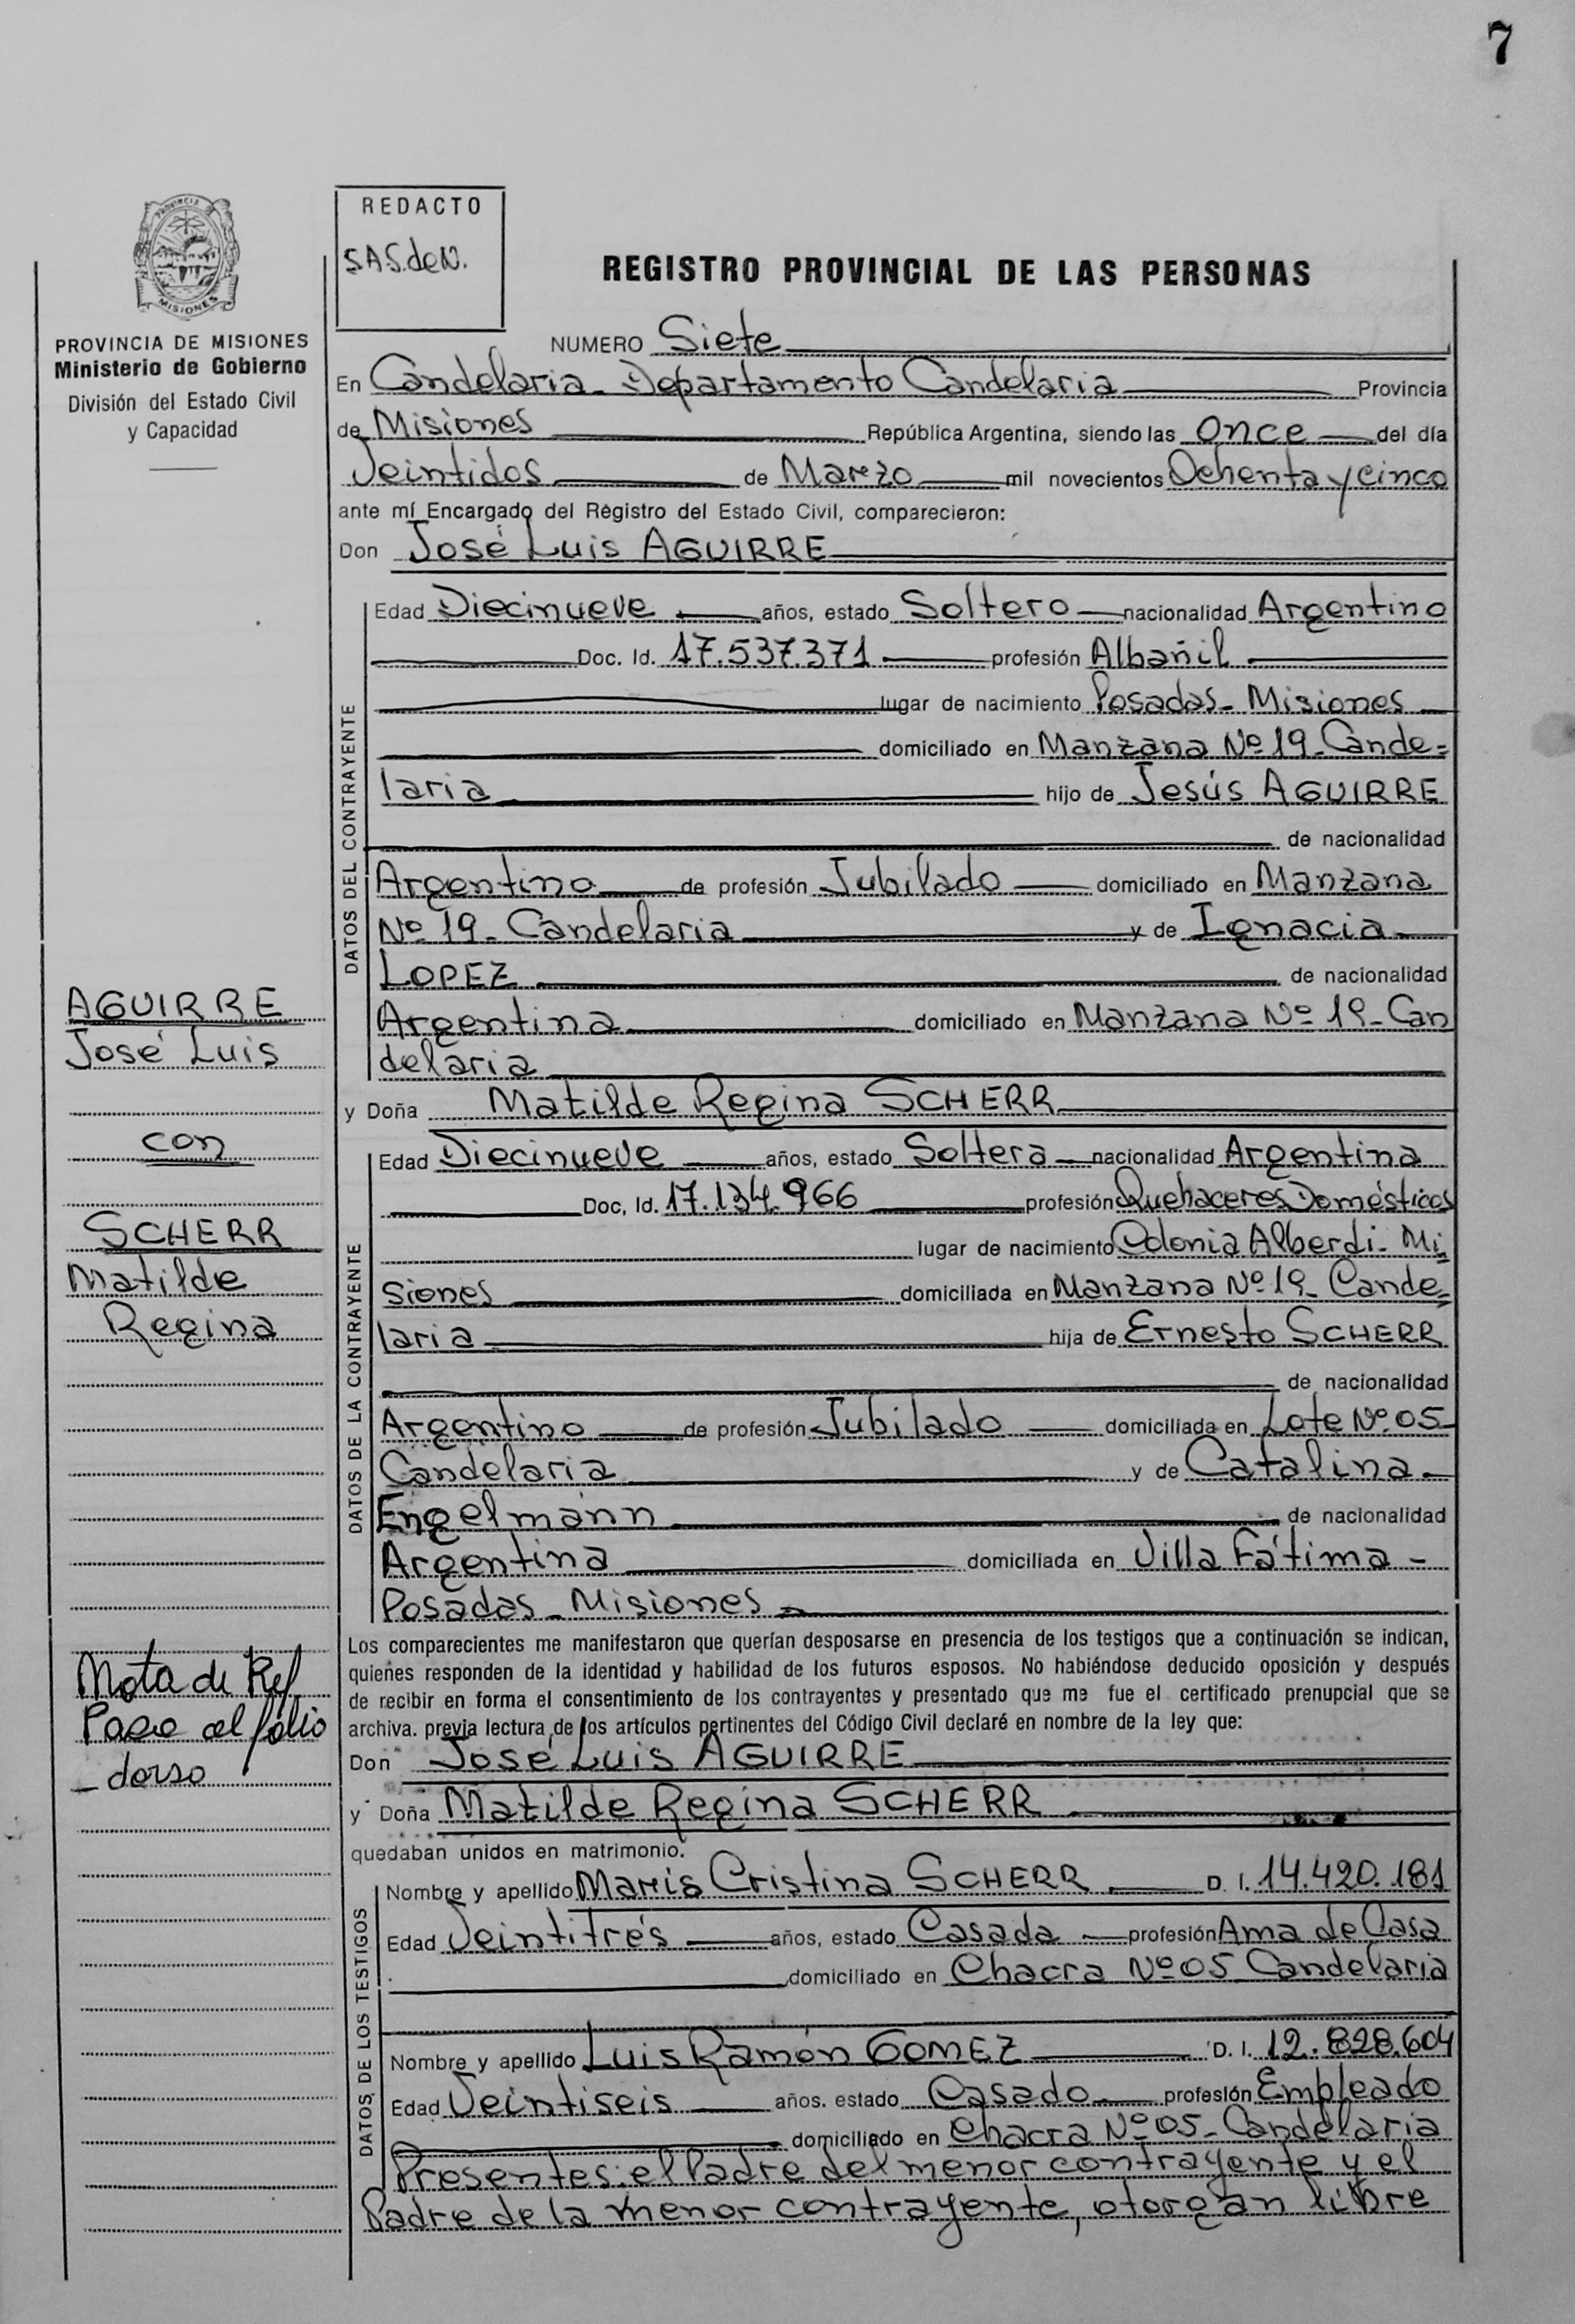 7
PROVINCIA
MISIONES
PROVINCIA DE MISIONES
Ministerio de Gobierno
División del Estado Civil
y Capacidad
REDACTO
S.A.S. de N.
REGISTRO PROVINCIAL DE LAS PERSONAS
NUMERO Siete
En Candelaria - Departamento Candelaria Provincia
de Misiones República Argentina, siendo las Once del día
Veintidos de Marzo mil novecientos Ochenta y cinco
ante mí Encargado del Régistro del Estado Civil, comparecieron:
Don José Luis AGUIRRE
DATOS DEL CONTRAYENTE
Edad Diecinueve años, estado Soltero nacionalidad Argentino
Doc. Id. 17.537.371 profesión Albañil
lugar de nacimiento Posadas - Misiones
domiciliado en Manzana Nº 19 - Cande=
laria hijo de Jesús AGUIRRE
de nacionalidad
Argentino de profesión Jubilado domiciliado en Manzana
Nº 19 - Candelaria y de Ignacia
LOPEZ de nacionalidad
Argentina domiciliado en Manzana Nº 19 - Can
delaria
y Doña Matilde Regina SCHERR
DATOS DE LA CONTRAYENTE
Edad Diecinueve años, estado Soltera nacionalidad Argentina
Doc, Id. 17.134.966 profesión Quehaceres Domésticos
lugar de nacimiento Colonia Alberdi - Mi
siones domiciliada en Manzana Nº 19 - Cande=
laria hija de Ernesto SCHERR
de nacionalidad
Argentino de profesión Jubilado domiciliada en Lote Nº 05
Candelaria y de Catalina
Engelmann de nacionalidad
Argentina domiciliada en Villa Fátima -
Posadas - Misiones
Los comparecientes me manifestaron que querían desposarse en presencia de los testigos que a continuación se indican,
quienes responden de la identidad y habilidad de los futuros esposos. No habiéndose deducido oposición y después
de recibir en forma el consentimiento de los contrayentes y presentado que me fue el certificado prenupcial que se
archiva. previa lectura de los artículos pertinentes del Código Civil declaré en nombre de la ley que:
Don José Luis AGUIRRE
y Doña Matilde Regina SCHERR
quedaban unidos en matrimonio.
DATOS DE LOS TESTIGOS
Nombre y apellido María Cristina SCHERR D. I. 14.420.181
Edad Veintitrés años, estado Casada profesión Ama de Casa
domiciliado en Chacra Nº 05 Candelaria
Nombre y apellido Luis Ramón GOMEZ D. I. 12.828.604
Edad Veintiseis años. estado Casado profesión Empleado
domiciliado en Chacra Nº 05 - Candelaria
Presentes: el Padre del menor contrayente y el
Padre de la menor contrayente, otorgan libre
AGUIRRE
José Luis
con
SCHERR
Matilde
Regina
Nota de Ref
Pase al fólio
- dorso